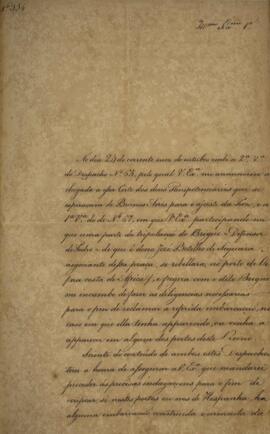 Nº 334
Illmo Exmo Sr
No dia 24 do corrente mez de outubro recebi a 2ª Vª
do Despacho Nº 63, pelo qual V. Exª me annunciava a
chegada a essa Corte dos dous Plenipotenciarios que se
esperavam de Buenos Aires para o ajuste da Paz, e a
1ª Vª do de Nº 67, em que V. Exª participando-me
que uma parte da tripolação do Brigue Defensor
de Pedro de que é dono José Botelho de Siqueira
negociante dessa praça, se rebellára, no porto de
na costa de Africa, e fugira com o dito Brigue
me incumbe de fazer as diligencias necessarias
para o fim de reclamar a referida embarcação, no
caso em que ella tenha apparecido, ou venha a
apparecer em algum dos portos deste Reino
Sciente do contheudo de ambos estes Despachos
tem a honra de assegurar a V. Exª que mandarei
proceder ás precisas indagações para o fim de
se nestes portos ou nos de Hespanha ha
alguma embarcação